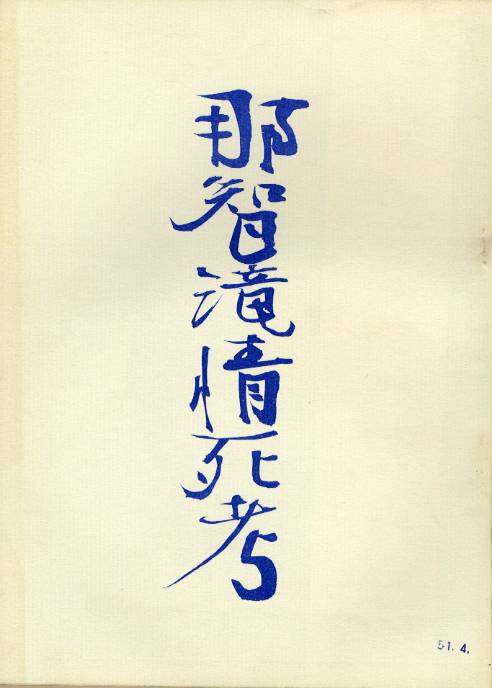 那智滝情死考
51.4.